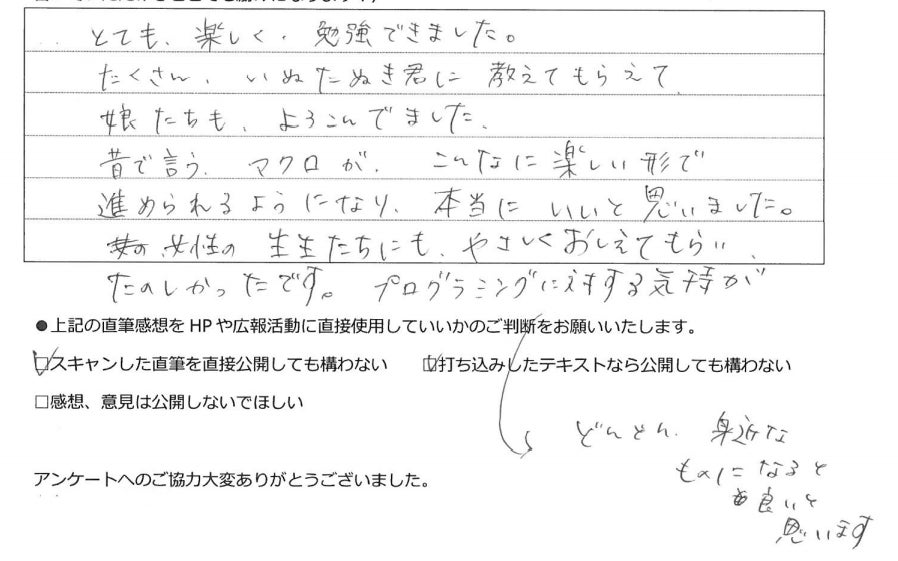 とても、楽しく、勉強できました。
たくさん、いぬたぬき君に 教えてもらえて、
娘たちも、よろこんでました、
昔で言う、マクロが、こんなに楽しい形で
進められるようになり、本当に いいと思いました。
女性の 生生たちにも、やさしくおしえてもらい、
たのしかったです。プログラミングに対する気持が
●上記の直筆感想を HP や広報活動に直接使用していいかのご判断をお願いいたします。
□スキャンした直筆を直接公開しても構わない □打ち込みしたテキストなら公開しても構わない
□感想、意見は公開しないでほしい
どんどん、身近な
ものになると
良いと
思います
アンケートへのご協力大変ありがとうございました。